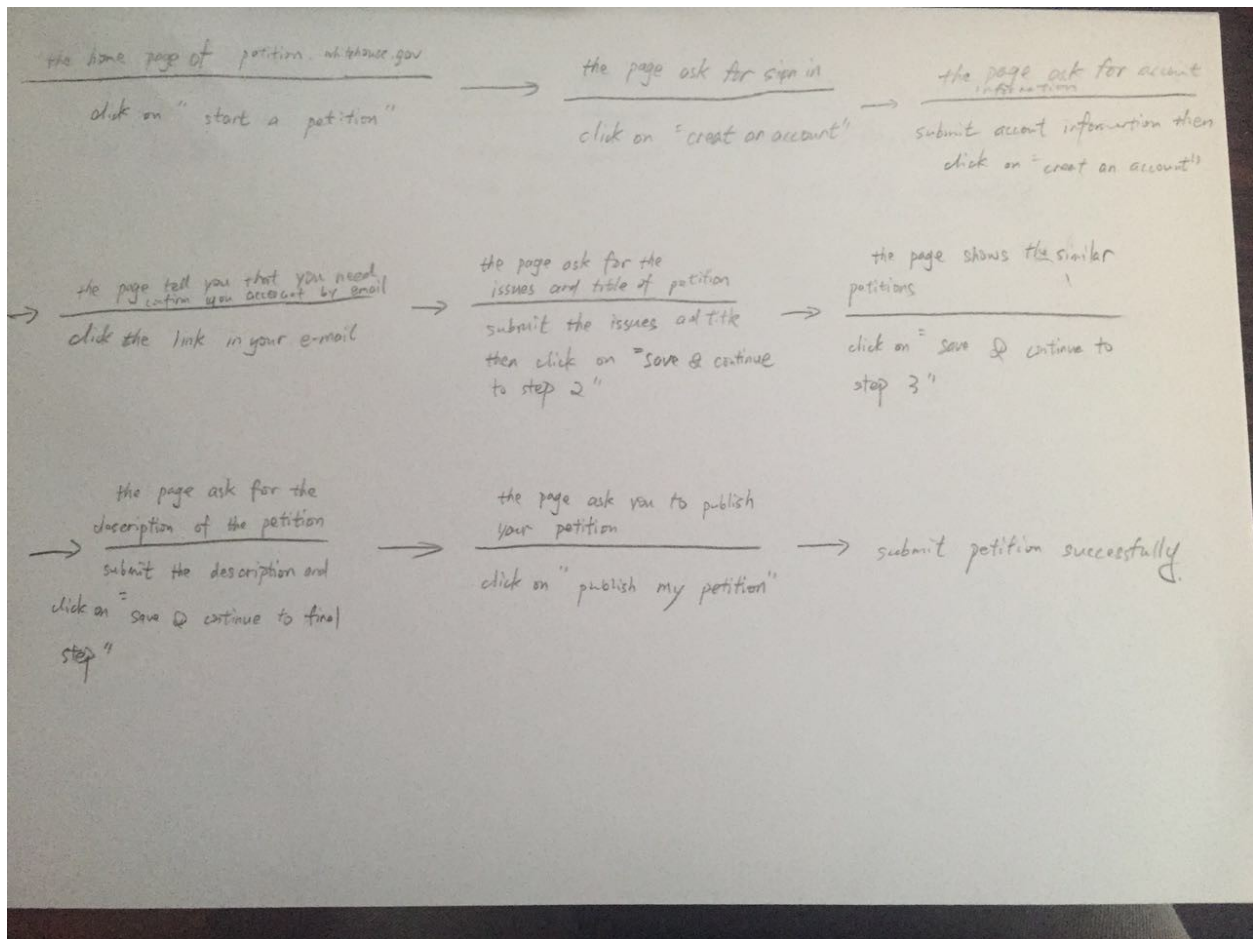 the home page of petition.whitehouse.gov
click on " start a petition"
the page ask for sign in
click on "creat an account"
the page ask for account
information
submit account information then
click on "creat an account"
the page tell you that you need
confirm your account by email
click the link in your e-mail
the page ask for the
issues and title of petition
submit the issues ad title
then click on "save & continue
to step 2"
the page shows the similar
petitions
click on " save & continue to
step 3"
the page ask for the
description of the petition
submit the description and
click on " save & continue to final
step"
the page ask you to publish
your petition
click on " publish my petition"
submit petition successfully.